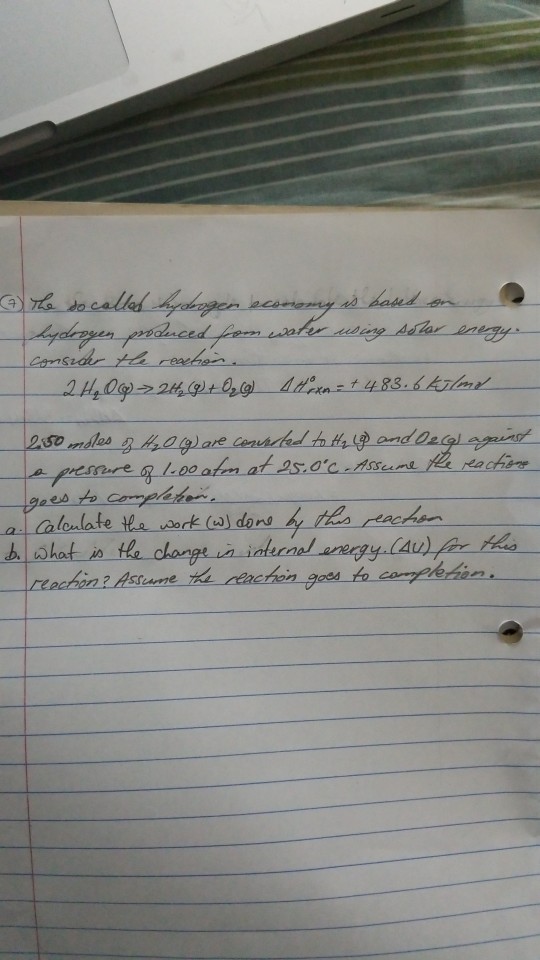 ⑦ The so called hydrogen economy is based on
hydrogen produced from water using solar energy.
Consider the reaction.
2H₂O(g) → 2H₂(g) + O₂(g) ΔH°rxn = + 483.6 kJ/mol
2.50 moles of H₂O(g) are converted to H₂(g) and O₂(g) against
a pressure of 1.00 atm at 25.0°C. Assume the reaction
goes to completion.
a. Calculate the work (w) done by this reaction
b. What is the change in internal energy. (ΔU) for this
reaction? Assume the reaction goes to completion.